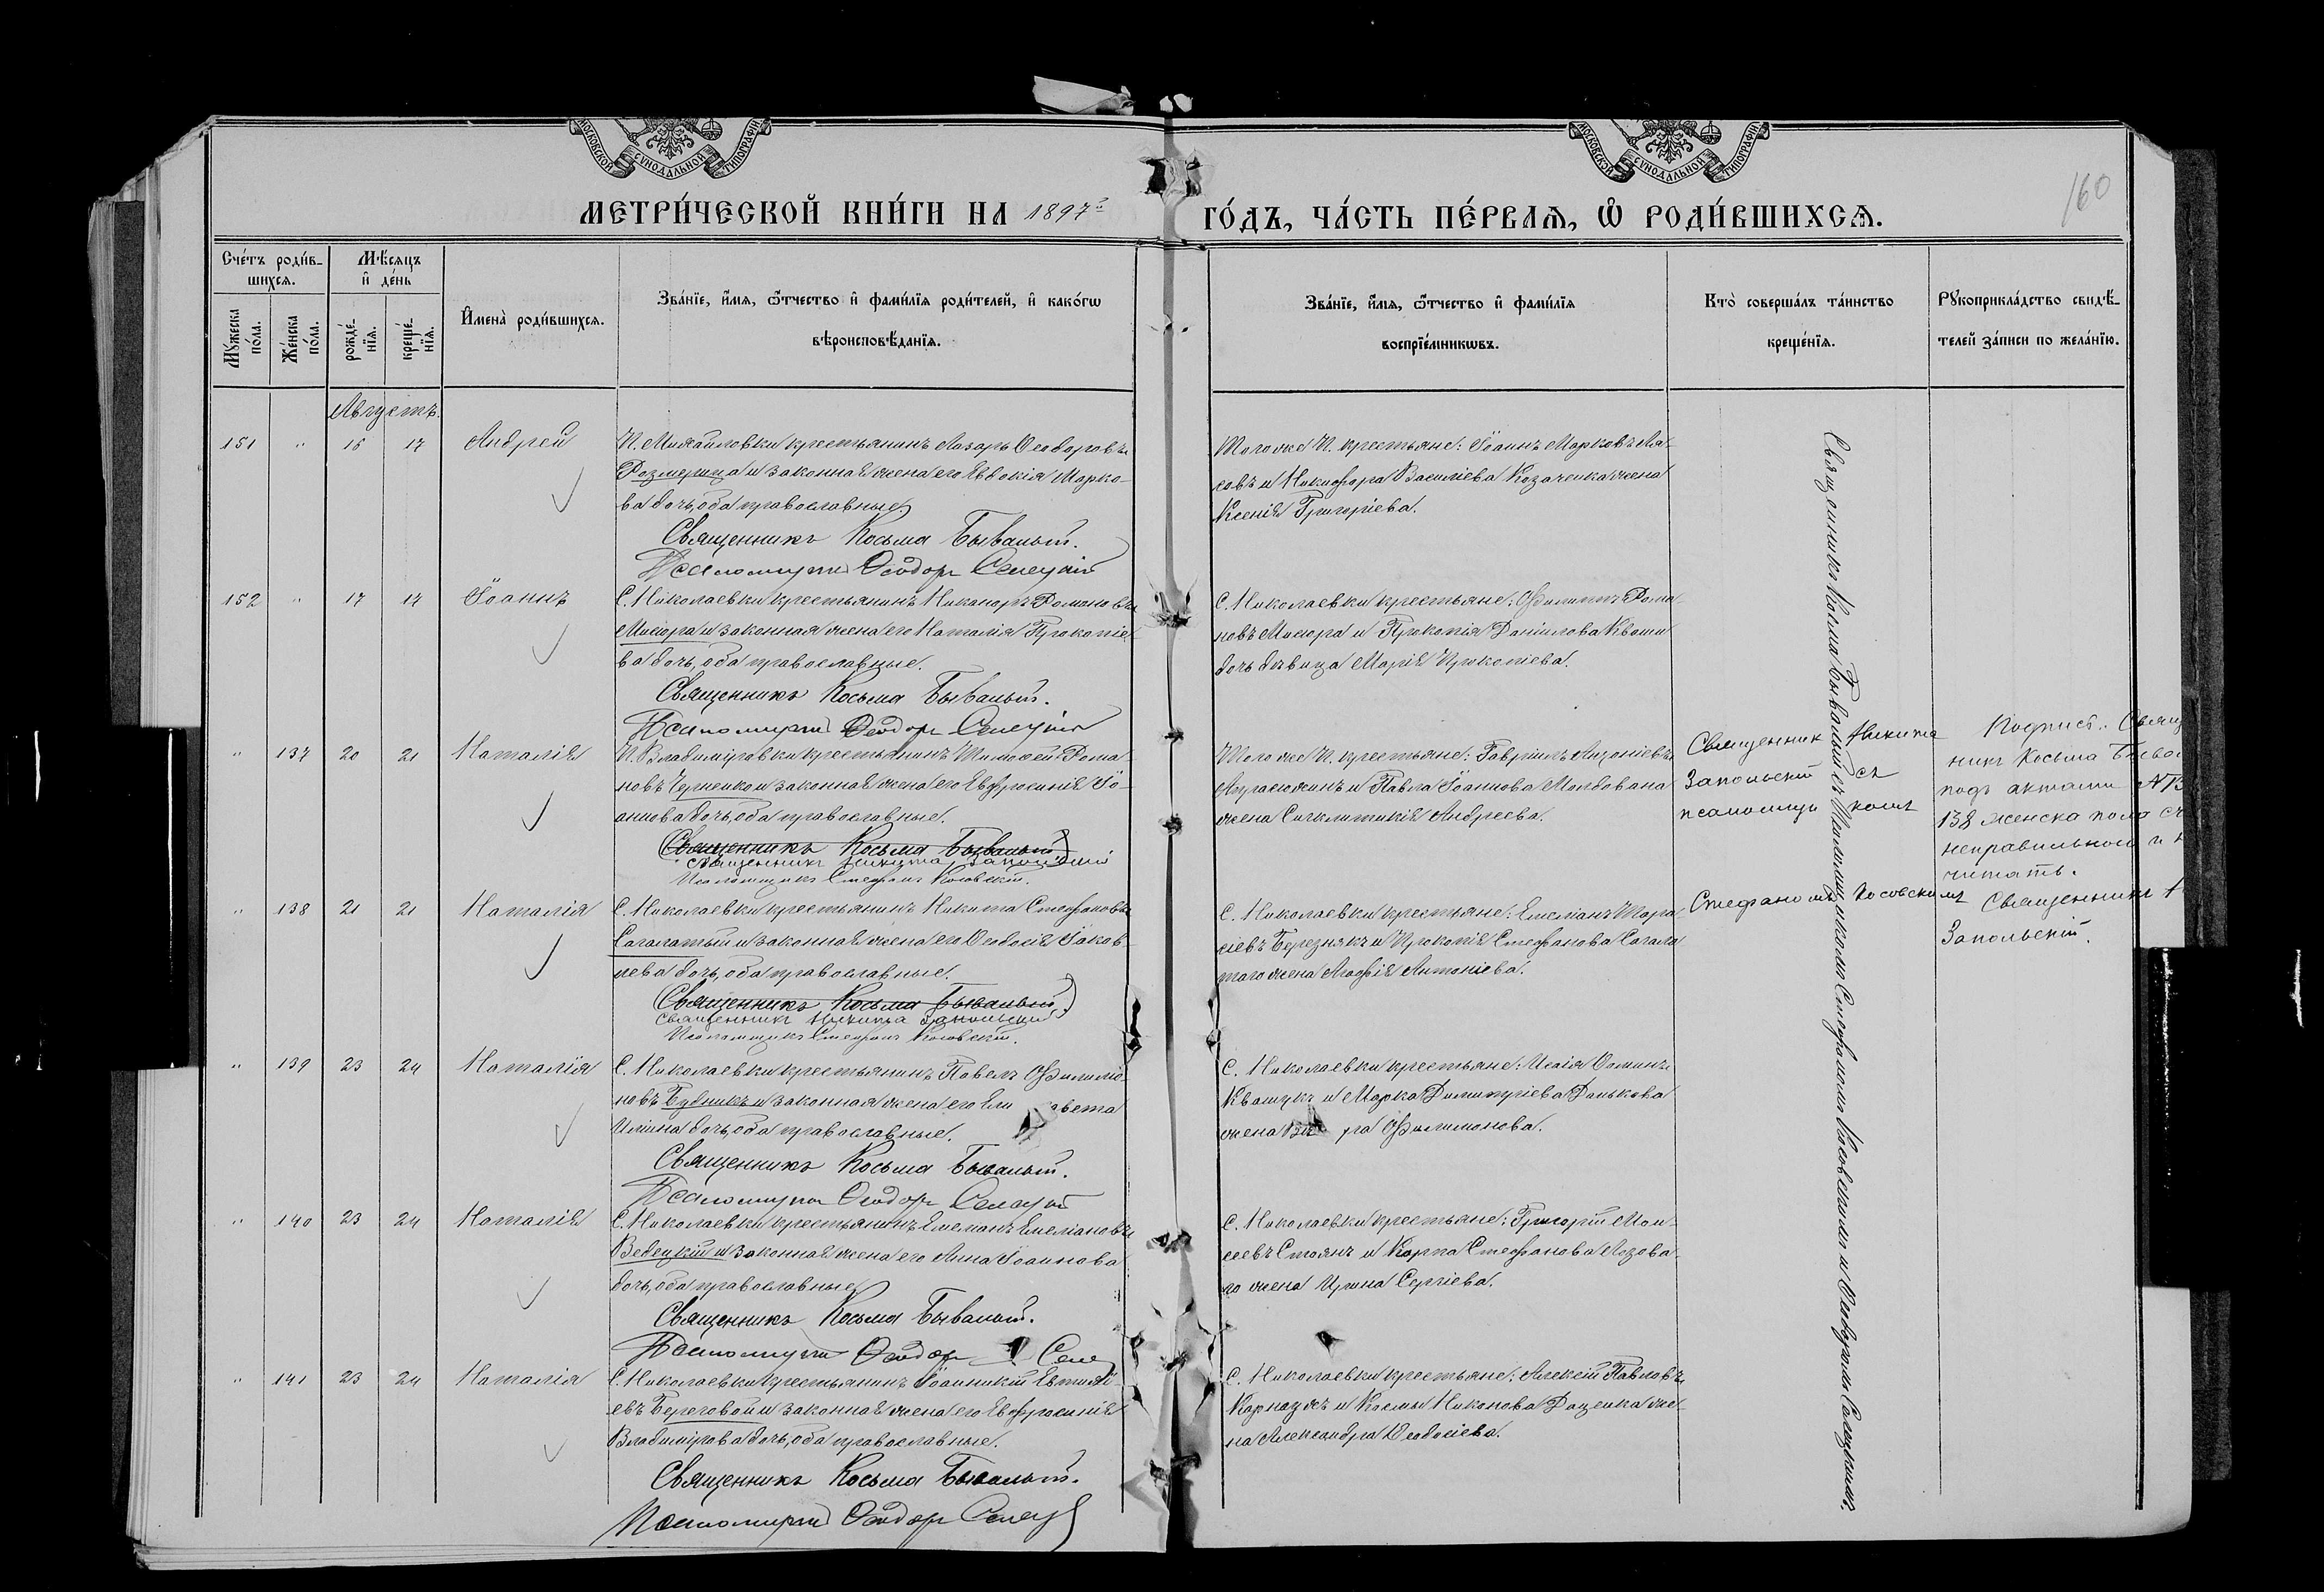 МОСКОВСКОЙ СУНОДАЛЬНОЙ ТИПОГРАФІИ
МОСКОВСКОЙ СУНОДАЛЬНОЙ ТИПОГРАФІИ
160
МЕТРИ́ЧЕСКОЙ КНИ́ГИ НА 1897 ГО́ДЪ, ЧА́СТЬ ПЕ́РВАѦ, Ѡ РОДИ́ВШИХСѦ.
Сче́тъ роди́в-
шихсѧ.
Мꙋ́жеска по́ла.
Же́нска по́ла.
Мѣ́сѧцъ
и҆ де́нь
рожде́-
нїѧ.
креще́-
нїѧ.
И҆мена̀ роди́вшихсѧ.
Зва́нїе, и҆́мѧ, ѻ҆́тчество и҆ фами́лїѧ роди́телей, и҆ како́гѡ
вѣроисповѣ́данїѧ.
Зва́нїе, и҆́мѧ, ѻ҆́тчество и҆ фами́лїѧ
воспрїе́мникѡвъ.
Кто̀ соверша́лъ та́инство
креще́нїѧ.
Рꙋкоприкла́дство свидѣ́-
телей за́писи по жела́нїю.
Августъ.
151 " 16 17 Андрей
П. Михайловки крестьянинъ Лазарь Ѳеодоровъ
Розмерица и законная жена его Евдокія Марко-
ва дочь, оба православные.
Священникъ Косьма Бывалый.
Псаломщикъ Ѳеодоръ Селецкій
Того же П. крестьяне: Іоаннъ Марковъ Ла-
совъ и Никифора Василіева Козаченка жена
Ксенія Григоріева.
152 " 17 17 Іоаннъ
С. Николаевки крестьянинъ Никаноръ Романовъ
Мисюра и законная жена его Наталія Прокопіе-
ва дочь, оба православные.
Священникъ Косьма Бывалый.
Псаломщикъ Ѳеодоръ Селецкій
С. Николаевки крестьяне: Филиппъ Рома-
новъ Мисюра и Прокопія Даніилова Кваши
дочь дѣвица Марія Прокопіева.
" 137 20 21 Наталія
П. Владиміровки крестьянинъ Тимоѳей Рома-
новъ Черненко и законная жена его Евфросинія Іо-
аннова дочь, оба православные.
Священникъ Косьма Бывалый
Священникъ Никита Запольскій
Псаломщикъ Стефанъ Косовскій.
Того же П. крестьяне: Гавріилъ
и Павла Іоаннова Молдована
жена Сигклитикія Андреева.
Священник Никита
Запольскій съ
псаломщикомъ
Подпись: Свящ
никъ Косьма Быва
подъ актами №13
138 женска пола
неправильной и
читать.
" 138 21 21 Наталія
С. Николаевки крестьянинъ Никита Стефановъ
Сагалатый и законная жена его Ѳеодосія Іаков-
лева дочь, оба православные.
Священникъ Косьма Бывалый.
Священникъ Никита Запольскій
Псаломщикъ Стефанъ Косовскій.
С. Николаевки крестьяне: Емеліанъ Тара-
сіевъ Березнякъ и Прокопія Стефанова Сагала-
таго жена Агафія Антоніева.
Стефаномъ Косовскимъ
Священникъ
Запольскій.
" 139 23 24 Наталія
С. Николаевки крестьянинъ Павелъ Филимо-
новъ Будникъ и законная жена его Ели вета
Ильина дочь, оба православные.
Священникъ Косьма Бывалый.
Псаломщикъ Ѳеодоръ Селецкій
С. Николаевки крестьяне: Исаія Ѳоминъ
Квашукъ и Марка Димитріева Данькова
жена ра Филимонова.
" 140 23 24 Наталія
С. Николаевки крестьянинъ Емеліанъ Емеліановъ
Ведецкій и законная жена его Анна Іоаннова
дочь, оба православные
Священникъ Косьма Бывалый.
Псаломщикъ Ѳеодоръ Селе
С. Николаевки крестьяне: Григорій Мои-
сеевъ Стоянъ и Карпа Стефанова Лозова-
го жена Ирина Сергіева.
" 141 23 24 Наталія
С. Николаевки крестьянинъ Іоанникій
евъ Береговой и законная жена его Евфросинія
Владимірова дочь, оба православные.
Священникъ Косьма Бывалый.
Псаломщикъ Ѳеодоръ Селец
С. Николаевки крестьяне: Алексій Павловъ
Карнаухъ и Космы Никонова Даценка же-
на Александра Ѳеодосіева.
Священникъ Косьма Бывалый съ Псаломщиками Стефаномъ Косовскимъ и Ѳеодоромъ Селецкимъ.